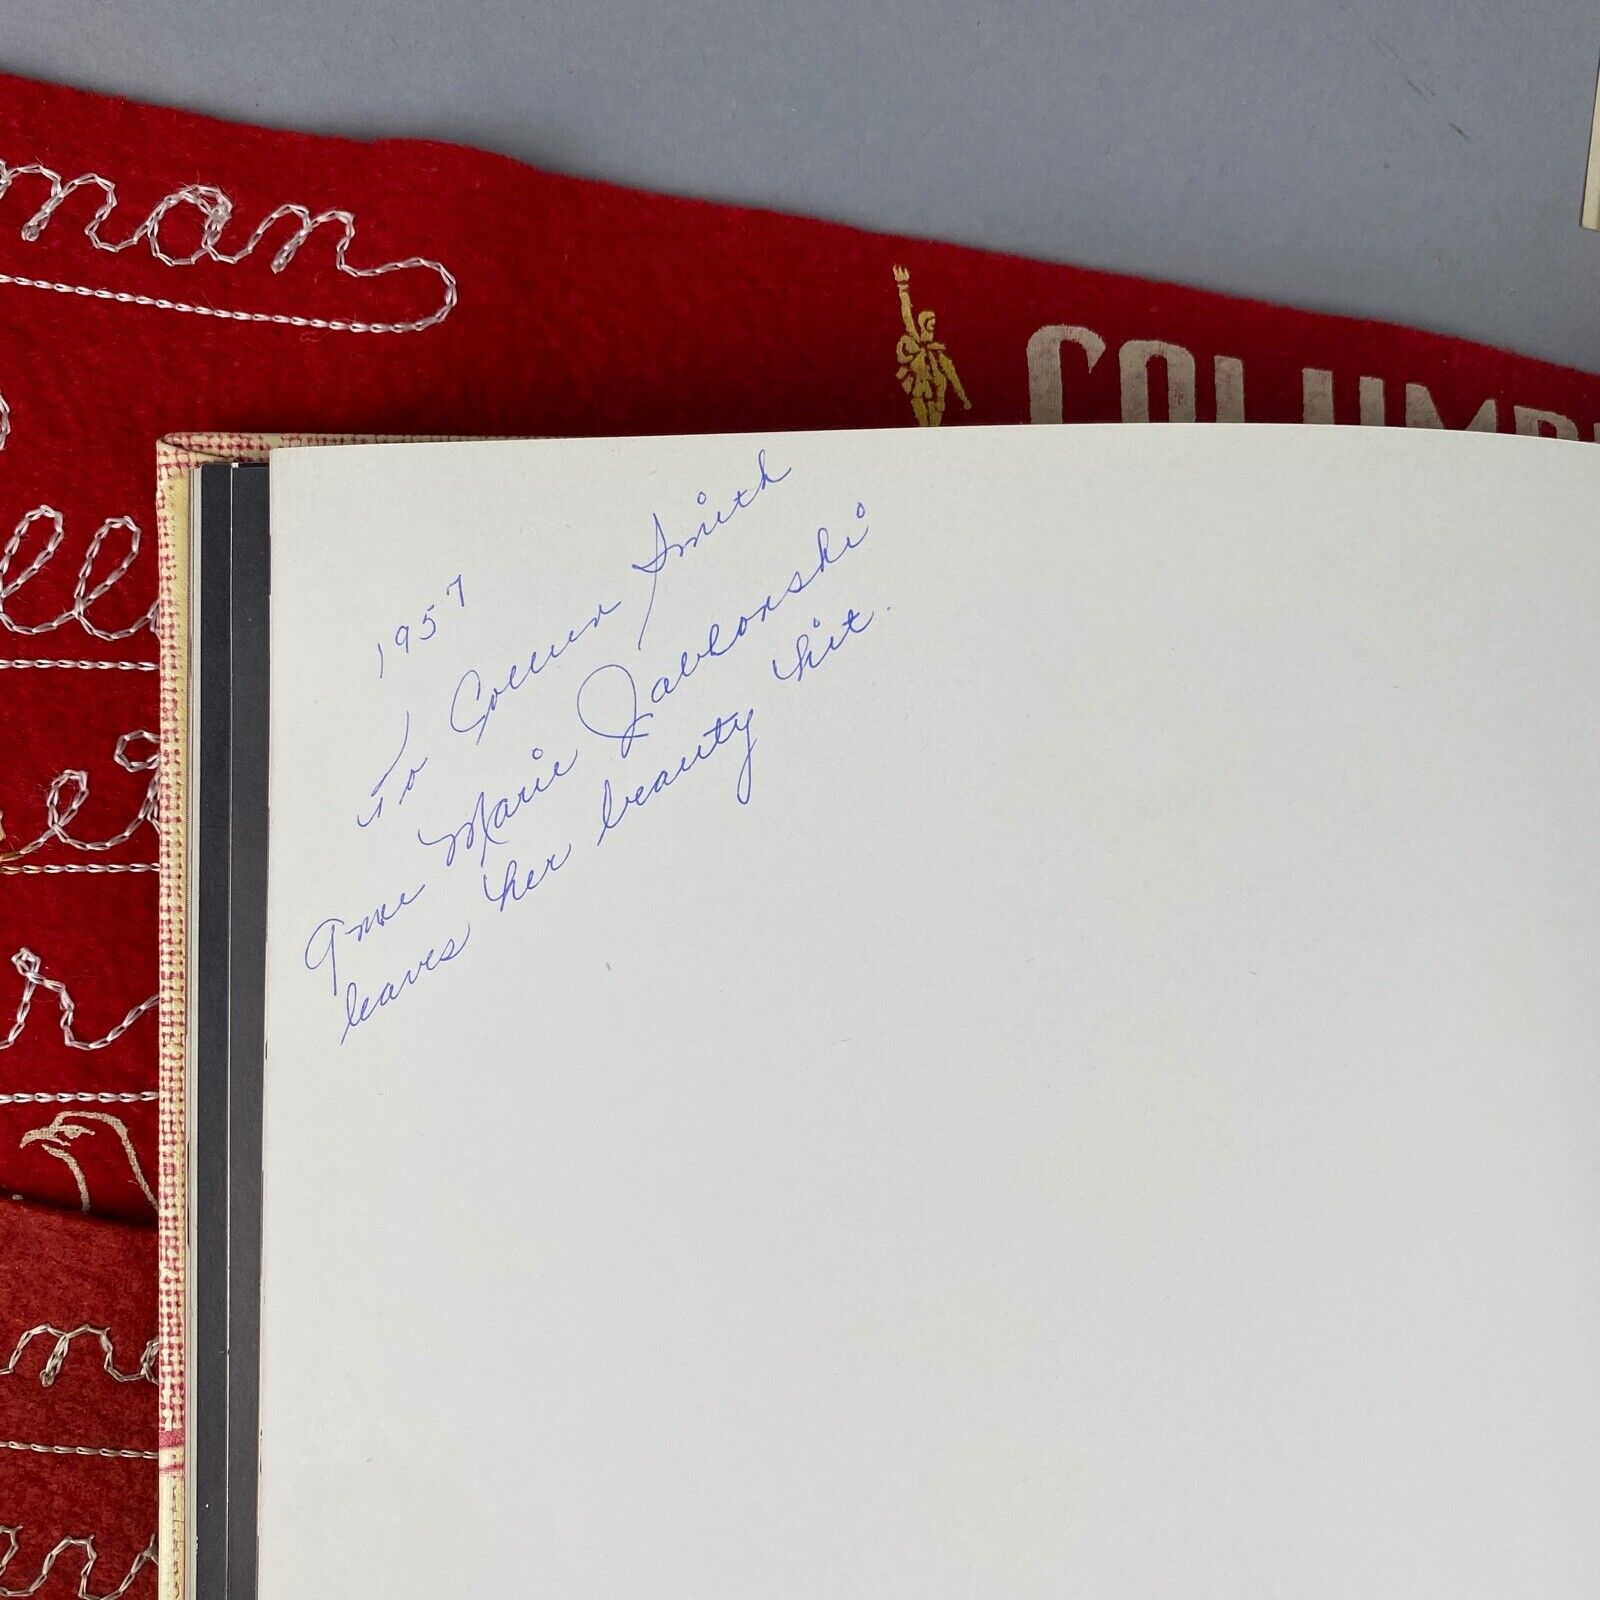 man
COLUMB
1957
To Colleen Smith
Anne Marie Jablonski
leaves her beauty kit.